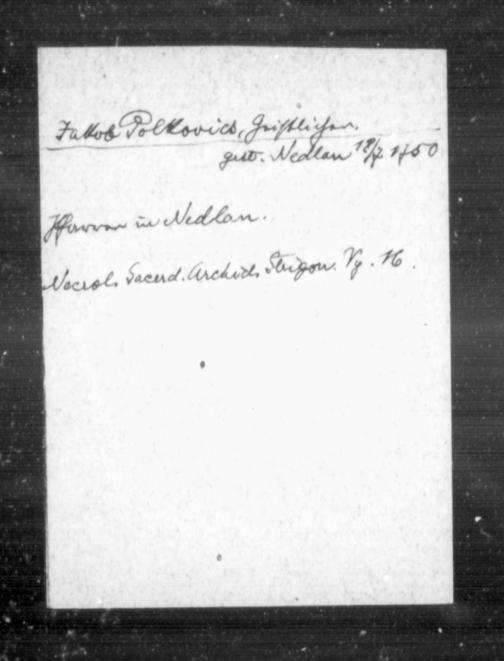 Jakob Polkovics, Geistlicher.
gest. Nedlan 18/7 1750
Pfarrer in Nedlan.
Necrol. Sacerd. Archid. Strigon. 16.